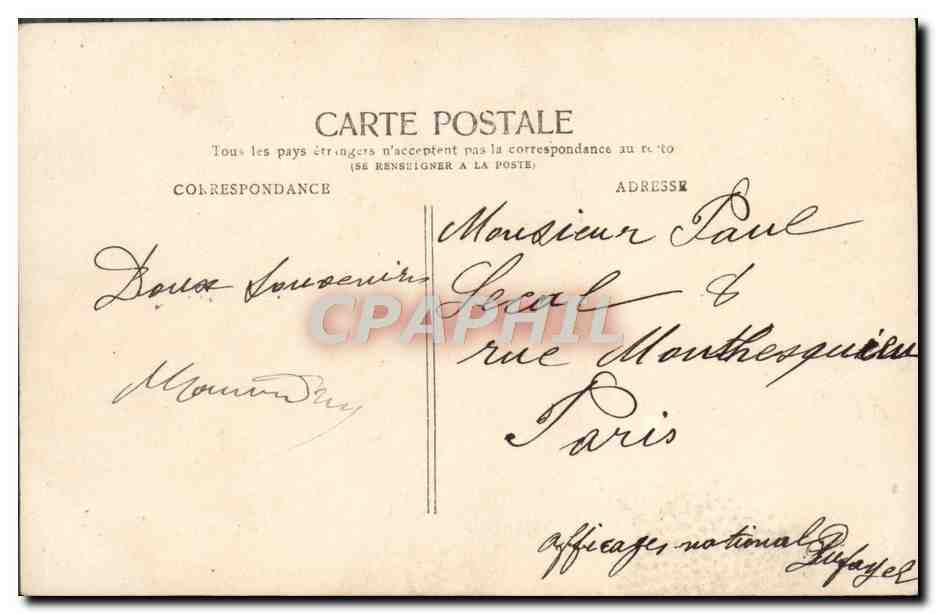 CARTE POSTALE
Tous les pays étrangers n'acceptent pas la correspondance au recto
(SE RENSEIGNER A LA POSTE)
CORRESPONDANCE
ADRESSE
Doux souvenirs
Monsieur Paul
Lecal 8
rue Monthesquieu
Paris
affichages national
Dufayel
CPAPHIL